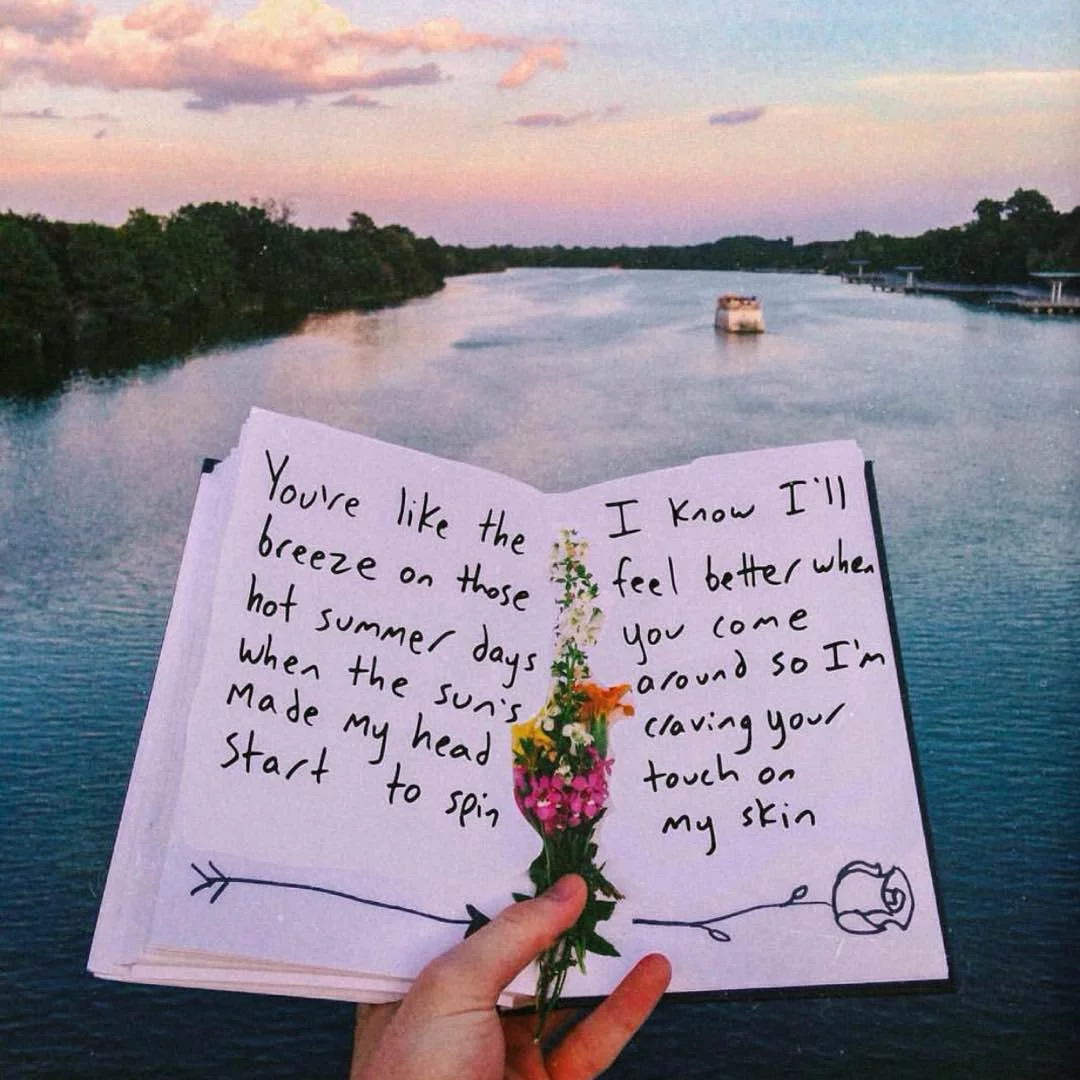 You're like the
breeze on those
hot summer days
when the sun's
made my head
start to spin
I know I'll
feel better when
you come
around so I'm
craving your
touch on
my skin